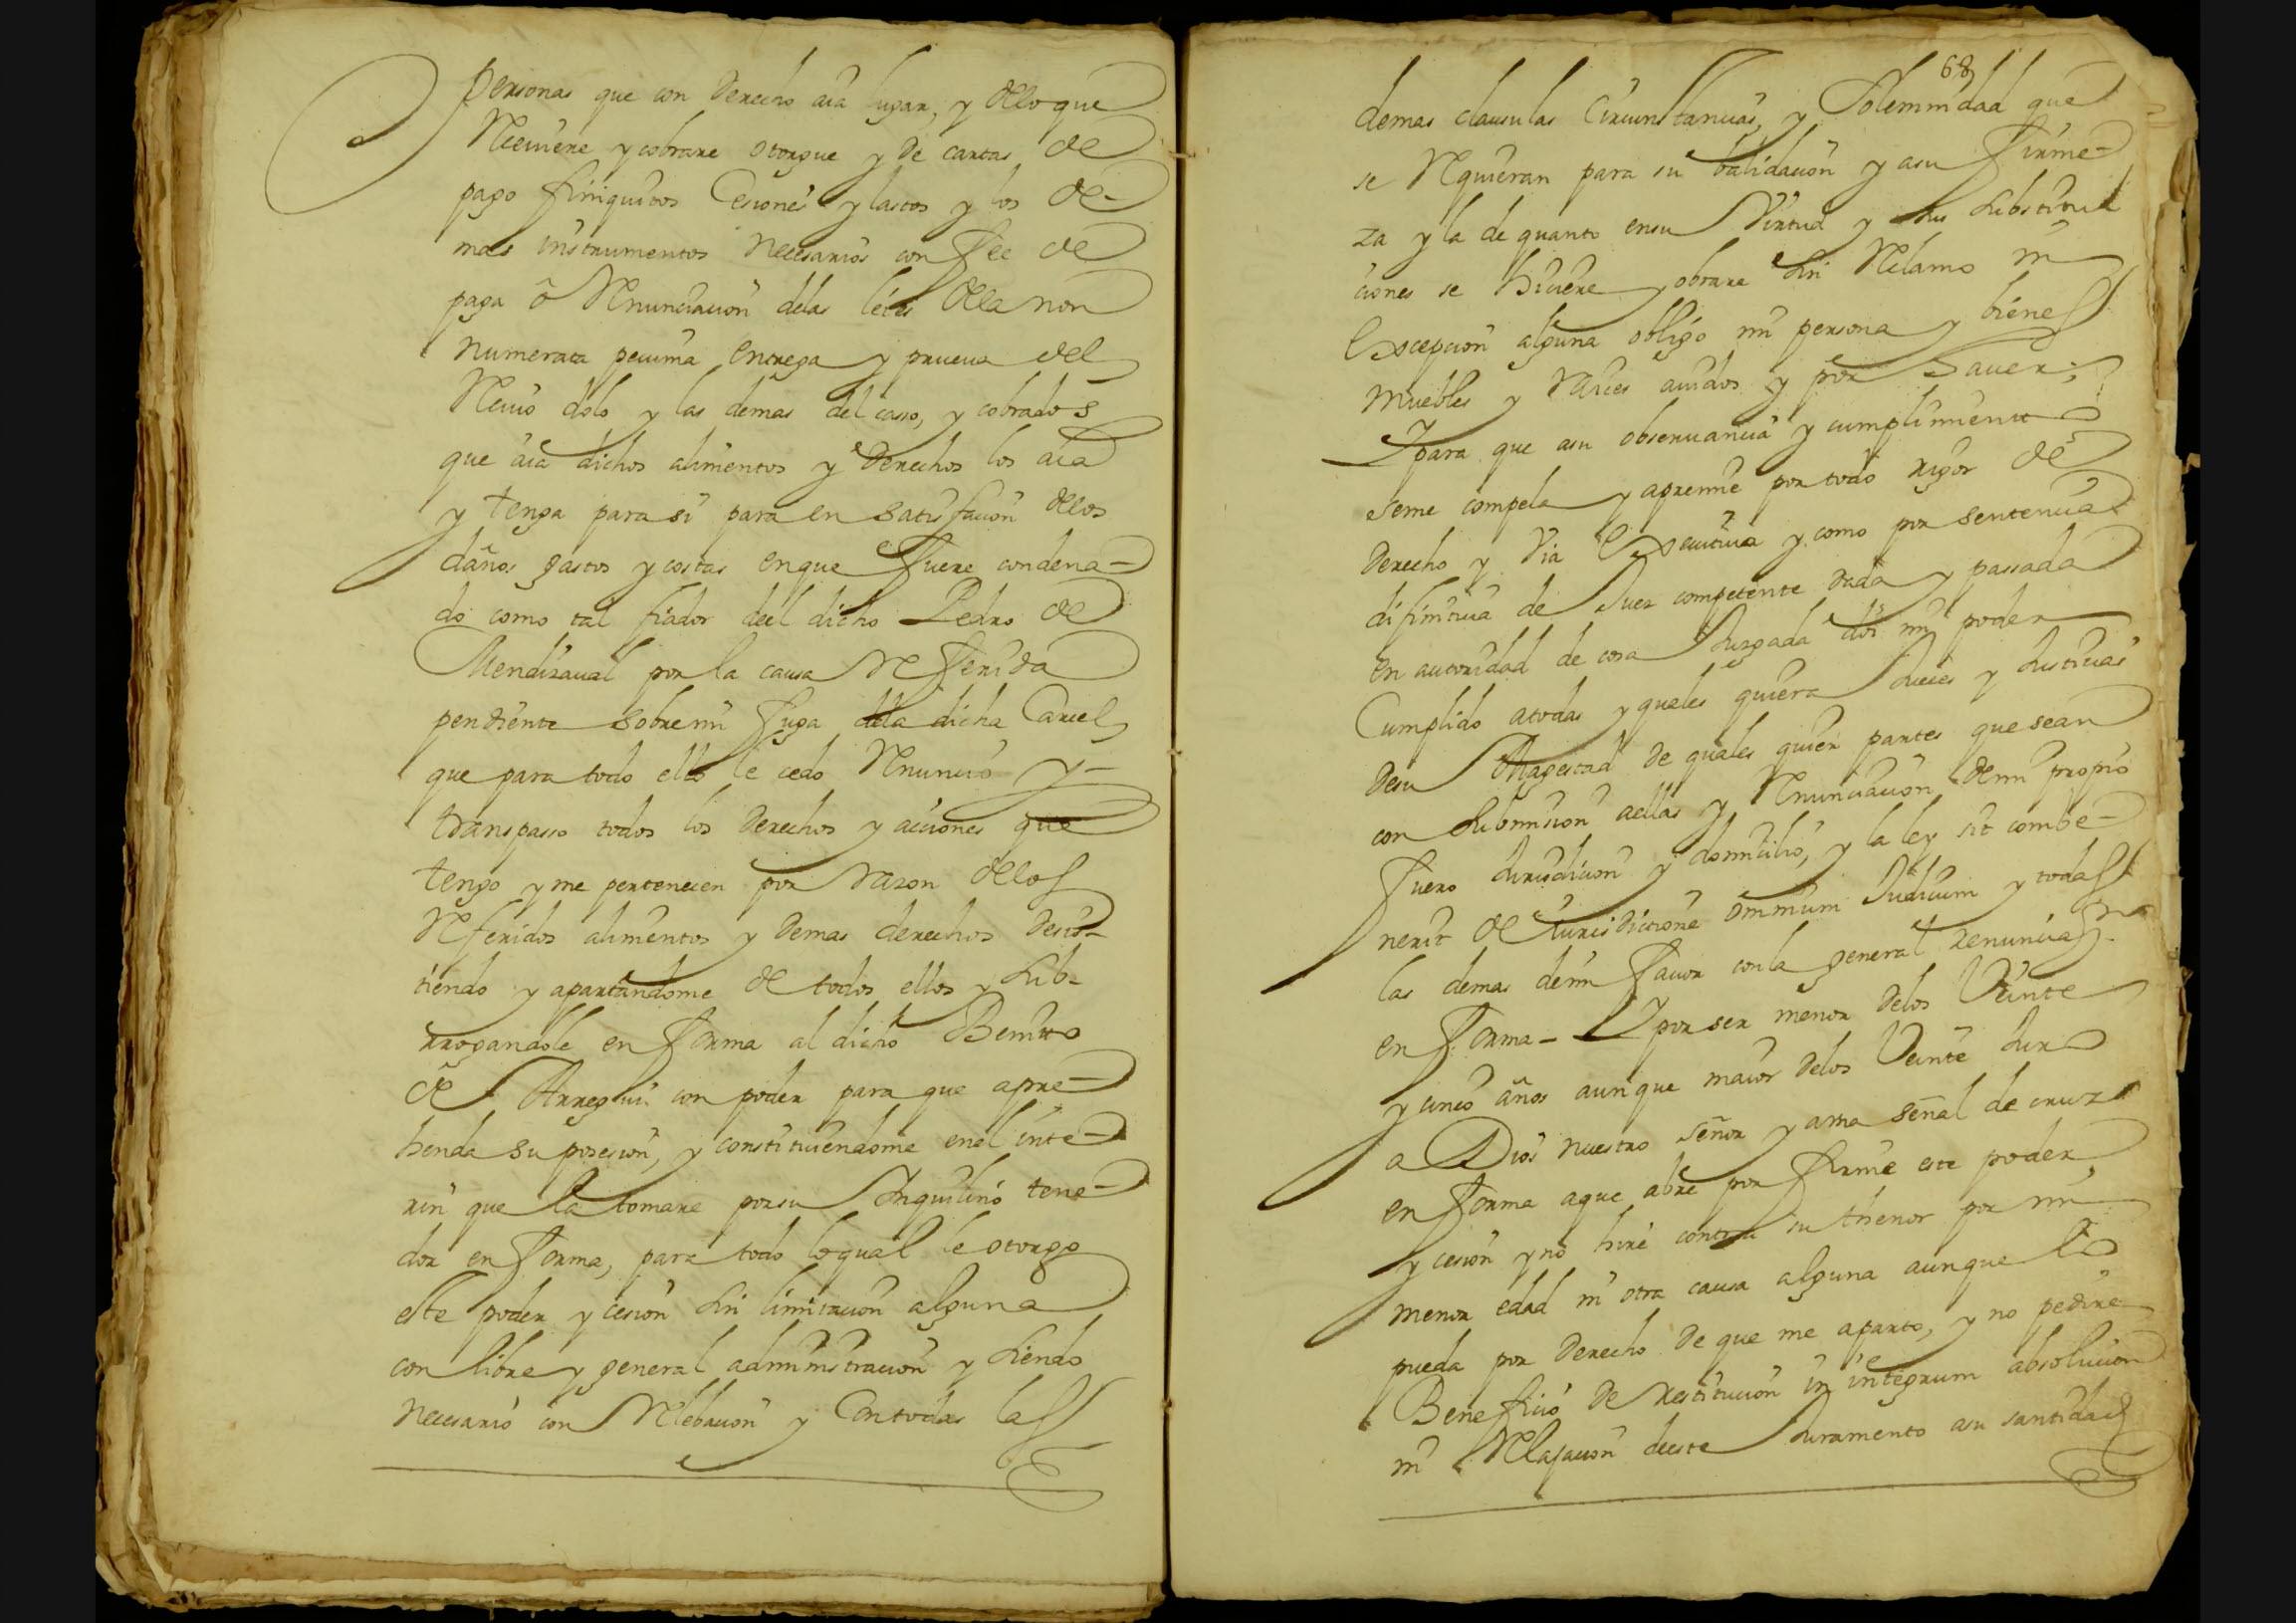 personas que con derecho aia lugar, y dello que
Reciuiere y cobrare otorgue y de cartas de
pago finiquitos Cesiones y lastos y los de-
mas instrumentos necesarios con fee de
paga ô Renunciacion delas leies della non
numerata pecunia entrega y prueua del
Reciuo dolo y las demas del casso, y cobrados
que aia dichos alimentos y derechos los aia
y tenga para si para en satisfacion dellos
daños gastos y costas en que fuere condena-
do como tal fiador deel dicho Pedro de
Mendizaual por la causa Referida
pendiente sobre mi fuga dela dicha Carcel
que para todo ello le cedo Renuncio y-
transpasso todos los derechos y acciones que
tengo y me pertenecen por razon dellos
Referidos alimentos y demas derechos desis-
tiendo y apartandome de todos ellos y sub-
rrogandole en forma al dicho Benito
de Arregui con poder para que apre-
henda su posesion, y constituiendome en el inte-
rin que la tomare por su Inquilino tene-
dor en forma, para todo lo qual le otorgo
este poder y cesion sin limitacion alguna
con libre y general administracion y siendo
necesario con Relebacion y Con todas las
68
demas clausulas Circunstancias, y Solemnidad que
se Requieran para su balidacion y a su firme-
za y la de quanto en su Virtud y sus substitu-
ciones se hiciere y obrare sin Reclamo ni
Excepcion alguna obligo mi persona y bienes
muebles y raices auidos y por hauer;
Y para que a su obseruancia y cumplimiento
se me compela y apremie por todo rigor de
derecho y Via Executiua y como por sentencia
difinitiua de Juez competente dada y passada
en autoridad de cosa Juzgada doi mi poder
Cumplido a todas y quales quiera Jueces y Justicias
de su Magestad de quales quier partes que sean
con submision a ellas y Renunciacion de mi propio
fuero Jurisdicion y domicilio, y la ley sit combe-
nerit de Iurisdictione omnium Iudicum y todas
las demas de mi fauor con la general renunciaz.on
en forma- Y por ser menor delos Veinte
y cinco años aunque maior delos Veinte Juro
a Dios nuestro señor y a una señal de cruz
en forma a que abre por firme este poder
y cesion y no hire contra su thenor por mi
menor edad ni otra causa alguna aunque lo
pueda por derecho de que me aparto, y no pedire
Beneficio de restitucion in integrum absolucion
ni Relajacion deeste Juramento a su santidad